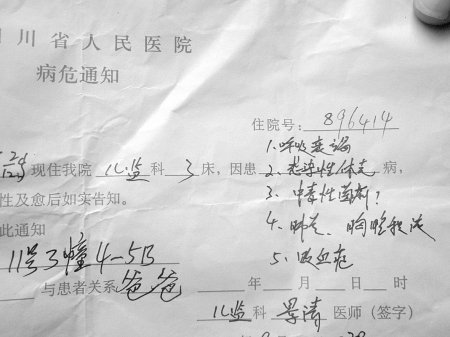 川省人民医院
病危通知
住院号：896414
1.呼吸衰竭
现住我院儿监科3床，因患2.感染性休克病，
3.中毒性菌痢？
性及愈后如实告知。
4.肺炎、胸腔积液
此通知
11号3幢4-5B
5.败血症
与患者关系爸爸
年 月 日 时
儿监科 景清 医师（签字）